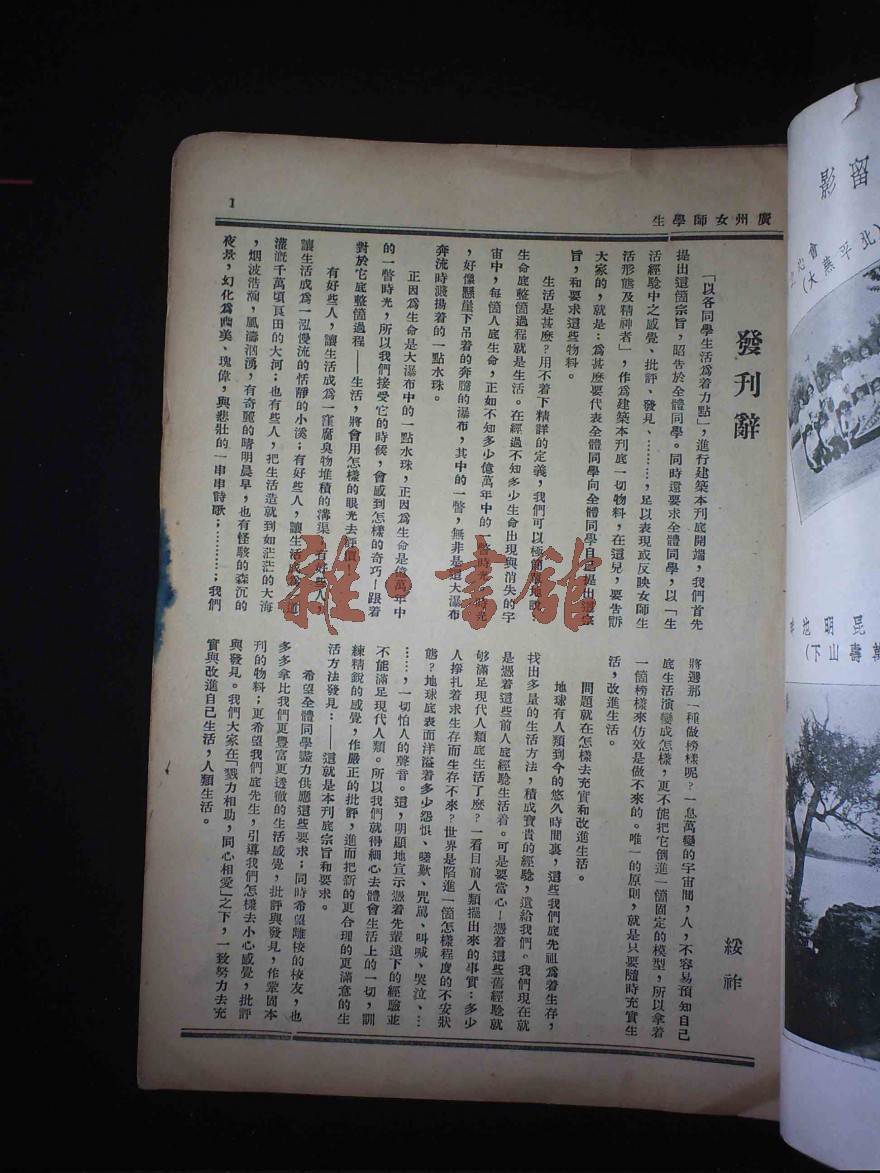 廣州女師學生
1
發刊辭
綏祚
「以各同學生活爲着力點」，進行建築本刊底開端，我們首先
提出這箇宗旨，昭告於全體同學。同時還要求全體同學，以「生
活經驗中之感覺、批評、發見、………，足以表現或反映女師生
活形態及精神者」，作爲建築本刊底一切物料，在這兒，要告訴
大家的，就是：爲甚麼要代表全體同學向全體同學自己提出這宗
旨，和要求這些物料。
生活是甚麼？用不着下精詳的定義，我們可以極簡單地說，
生命底整箇過程就是生活。在經過不知多少生命出現與消失的宇
宙中，每箇人底生命，正如不知多少億萬年中的一瞥時光，時光
，好像懸崖下吊着的奔騰的瀑布，其中的一瞥，無非是這大瀑布
奔流時濺揚着的一點水珠。
正因爲生命是大瀑布中的一點水珠，正因爲生命是億萬年中
的一瞥時光，所以我們接受它的時候，會感到怎樣的奇巧！跟着
對於它底整箇過程——生活，將會用怎樣的眼光去評價！
有好些人，讓生活成爲一窪腐臭物堆積的溝渠，有好些人，
讓生活成爲一泓慢流的恬靜的小溪；有好些人，讓生活成爲一道
灌漑千萬頃良田的大河；也有些人，把生活造就到如茫茫的大海
，烟波浩淘，風濤洶湧，有奇麗的晴明晨早，也有怪駭的森沉的
夜景，幻化爲幽美、瑰偉，與悲壯的一串串詩歌；…………；我們
將選那一種做榜樣呢？一息萬變的宇宙間，人，不容易預知自己
底生活演變成怎樣，更不能把它倒進一箇固定的模型，所以拿着
一箇榜樣來仿效是做不來的。唯一的原則，就是只要隨時充實生
活，改進生活。
問題就在怎樣去充實和改進生活。
地球有人類到今的悠久時間裏，這些我們底先祖爲着生存，
找出多量的生活方法，積成寶貴的經驗，遺給我們。我們現在就
是憑着這些前人底經驗生活着。可是要當心！憑着這些舊經驗就
够滿足現代人類底生活了麽？一看目前人類擺出來的事實：多少
人掙扎着求生存而生存不來？世界是陷進一箇怎樣程度的不安狀
態？地球底表面洋溢着多少怨恨、嗟歎、咒駡、叫喊、哭泣、…
……，一切怕人的聲音。這，明顯地宣示憑着先輩遺下的經驗並
不能滿足現代人類。所以我們就得細心去體會生活上的一切，訓
練精銳的感覺，作嚴正的批評，進而把新的更合理的更滿意的生
活方法發見：——這就是本刊底宗旨和要求。
希望全體同學盡力供應這些要求；同時希望離校的校友，也
多多拿比我們更豐富更透徹的生活感覺，批評與發見，作鞏固本
刊的物料；更希望我們底先生，引導我們怎樣去小心感覺，批評
與發見。我們大家在「戮力相助，同心相愛」之下，一致努力去充
實與改進自己生活，人類生活。
留影
(北平燕大)
昆明池畔
雜·書館